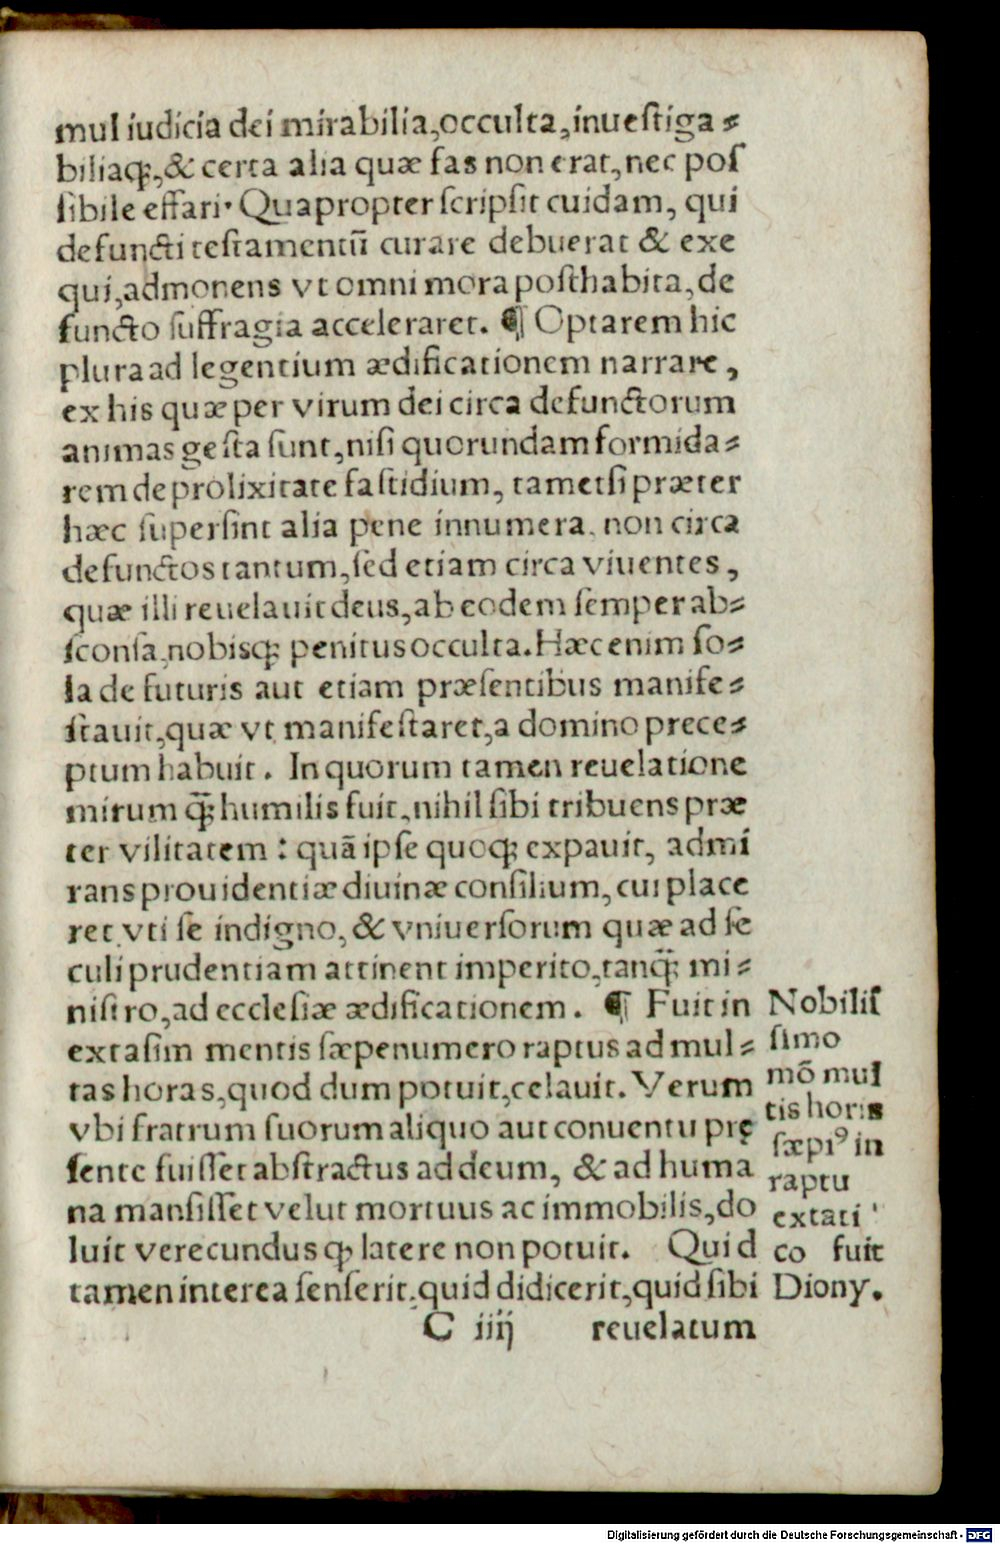 mul iudicia dei mirabilia, occulta, inueſtiga⸗
biliaq;, & certa alia quæ fas non erat, nec poſ
ſibile effari. Quapropter ſcripſit cuidam, qui
defuncti teſtamentū curare debuerat & exe
qui, admonens vt omni mora poſthabita, de
functo ſuffragia acceleraret. ¶ Optarem hic
plura ad legentium ædificationem narrare,
ex his quæ per virum dei circa defunctorum
animas geſta ſunt, niſi quorundam formida⸗
rem de prolixitate faſtidium, tametſi præter
hæc ſuperſint alia pene innumera, non circa
defunctos tantum, ſed etiam circa viuentes,
quæ illi reuelauit deus, ab eodem ſemper ab⸗
ſconſa, nobisq; penitus occulta. Hæc enim ſo⸗
la de futuris aut etiam præſentibus manife⸗
ſtauit, quæ vt manifeſtaret, a domino prece⸗
ptum habuit. In quorum tamen reuelatione
mirum q̄; humilis fuit, nihil ſibi tribuens præ
ter vilitatem: quā ipſe quoq; expauit, admi
rans prouidentiæ diuinæ conſilium, cui place
ret vti ſe indigno, & vniuerſorum quæ ad ſe
culi prudentiam attinent imperito, tanq̄; mi⸗
niſtro, ad eccleſiæ ædificationem. ¶ Fuit in
extaſim mentis ſæpenumero raptus ad mul⸗
tas horas, quod dum potuit, celauit. Verum
vbi fratrum ſuorum aliquo aut conuentu prę
ſente fuiſſet abſtractus ad deum, & ad huma
na manſiſſet velut mortuus ac immobilis, do
luit verecundus q; latere non potuit. Quid
tamen interea ſenſerit, quid didicerit, quid ſibi
C iiij reuelatum
Nobiliſ
ſimo
mō mul
tis horis
ſæpiꝰ in
raptu
extati
co fuit
Diony.
Digitalisierung gefördert durch die Deutsche Forschungsgemeinschaft - DFG